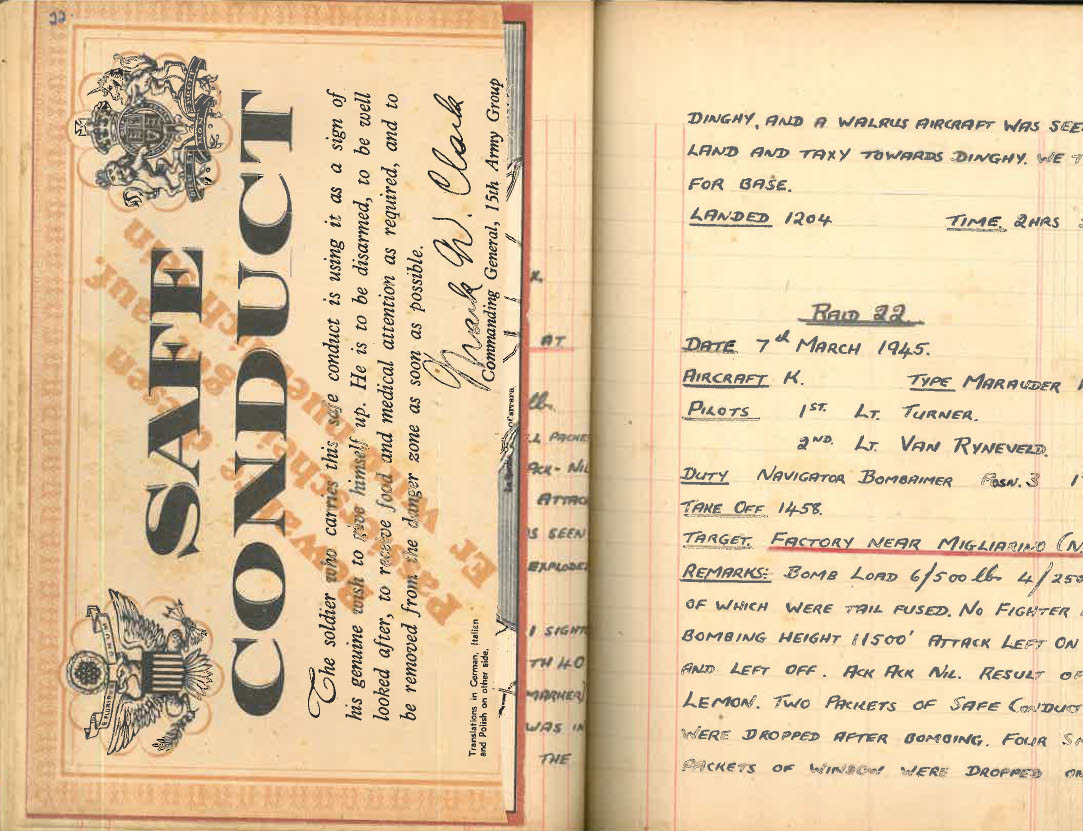 22
SAFE
CONDUCT
The soldier who carries this safe conduct is using it as a sign of
his genuine wish to give himself up. He is to be disarmed, to be well
looked after, to receive food and medical attention as required, and to
be removed from the danger zone as soon as possible.
Mark W. Clark
Commanding General, 15th Army Group
Translations in German, Italian
and Polish on other side.
AT
lb.
ACK - NIL
ATTACK
SEEN
EXPLODED
SIGHT
TH 40
MARKER)
WAS IN
THE
DINGHY, AND A WALRUS AIRCRAFT WAS SEE
LAND AND TAXY TOWARDS DINGHY. WE
FOR BASE.
LANDED 1204 TIME, 2HRS
RAID 22
DATE 7th MARCH 1945.
AIRCRAFT K. TYPE MARAUDER
PILOTS 1ST. LT. TURNER.
2ND. LT. VAN RYNEVELD.
DUTY NAVIGATOR BOMBAIMER POSN. 3
TAKE OFF 1458.
TARGET. FACTORY NEAR MIGLIARINO (N
REMARKS: BOMB LOAD 6/500 lb 4/250
OF WHICH WERE TAIL FUSED. NO FIGHTER
BOMBING HEIGHT 11500' ATTACK LEFT ON
AND LEFT OFF. ACK ACK NIL. RESULT OF
LEMON. TWO PACKETS OF SAFE CONDUCT
WERE DROPPED AFTER BOMBING. FOUR
PACKETS OF WINDOW WERE DROPPED ON